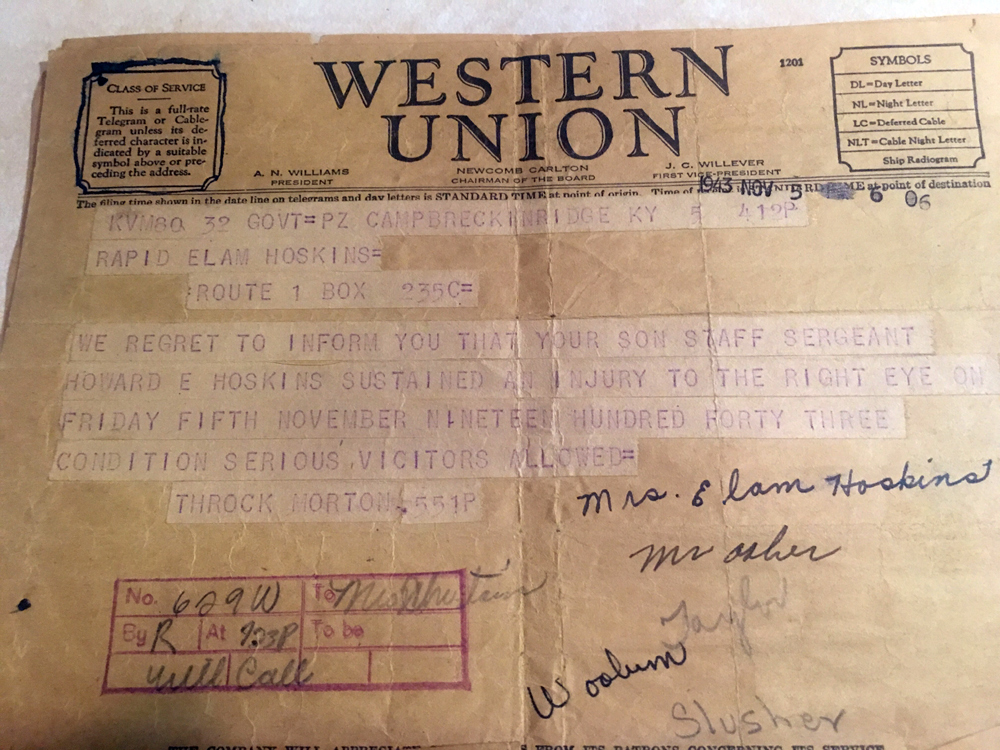 CLASS OF SERVICE
This is a full-rate
Telegram or Cable-
gram unless its de-
ferred character is in-
dicated by a suitable
symbol above or pre-
ceding the address.
WESTERN
UNION
1201
A. N. WILLIAMS
PRESIDENT
NEWCOMB CARLTON
CHAIRMAN OF THE BOARD
J. C. WILLEVER
FIRST VICE-PRESIDENT
SYMBOLS
DL=Day Letter
NL=Night Letter
LC=Deferred Cable
NLT=Cable Night Letter
Ship Radiogram
The filing time shown in the date line on telegrams and day letters is STANDARD TIME at point of origin. Time of at point of destination
1943 NOV 5 6 06
KVM80 32 GOVT=PZ CAMPBRECKINRIDGE KY 5 412P
RAPID ELAM HOSKINS=
ROUTE 1 BOX 235C=
WE REGRET TO INFORM YOU THAT YOUR SON STAFF SERGEANT
HOWARD E HOSKINS SUSTAINED AN INJURY TO THE RIGHT EYE ON
FRIDAY FIFTH NOVEMBER NINETEEN HUNDRED FORTY THREE
CONDITION SERIOUS VICITORS ALLOWED=
THROCK MORTON 551P
Mrs. Elam Hoskins
Mr asher
Taylor
Woolum
Slusher
No. 629W To
By R At 723P To be
will Call
THE COMPANY WILL APPRECIATE FROM ITS PATRONS CONCERNING ITS SERVICE